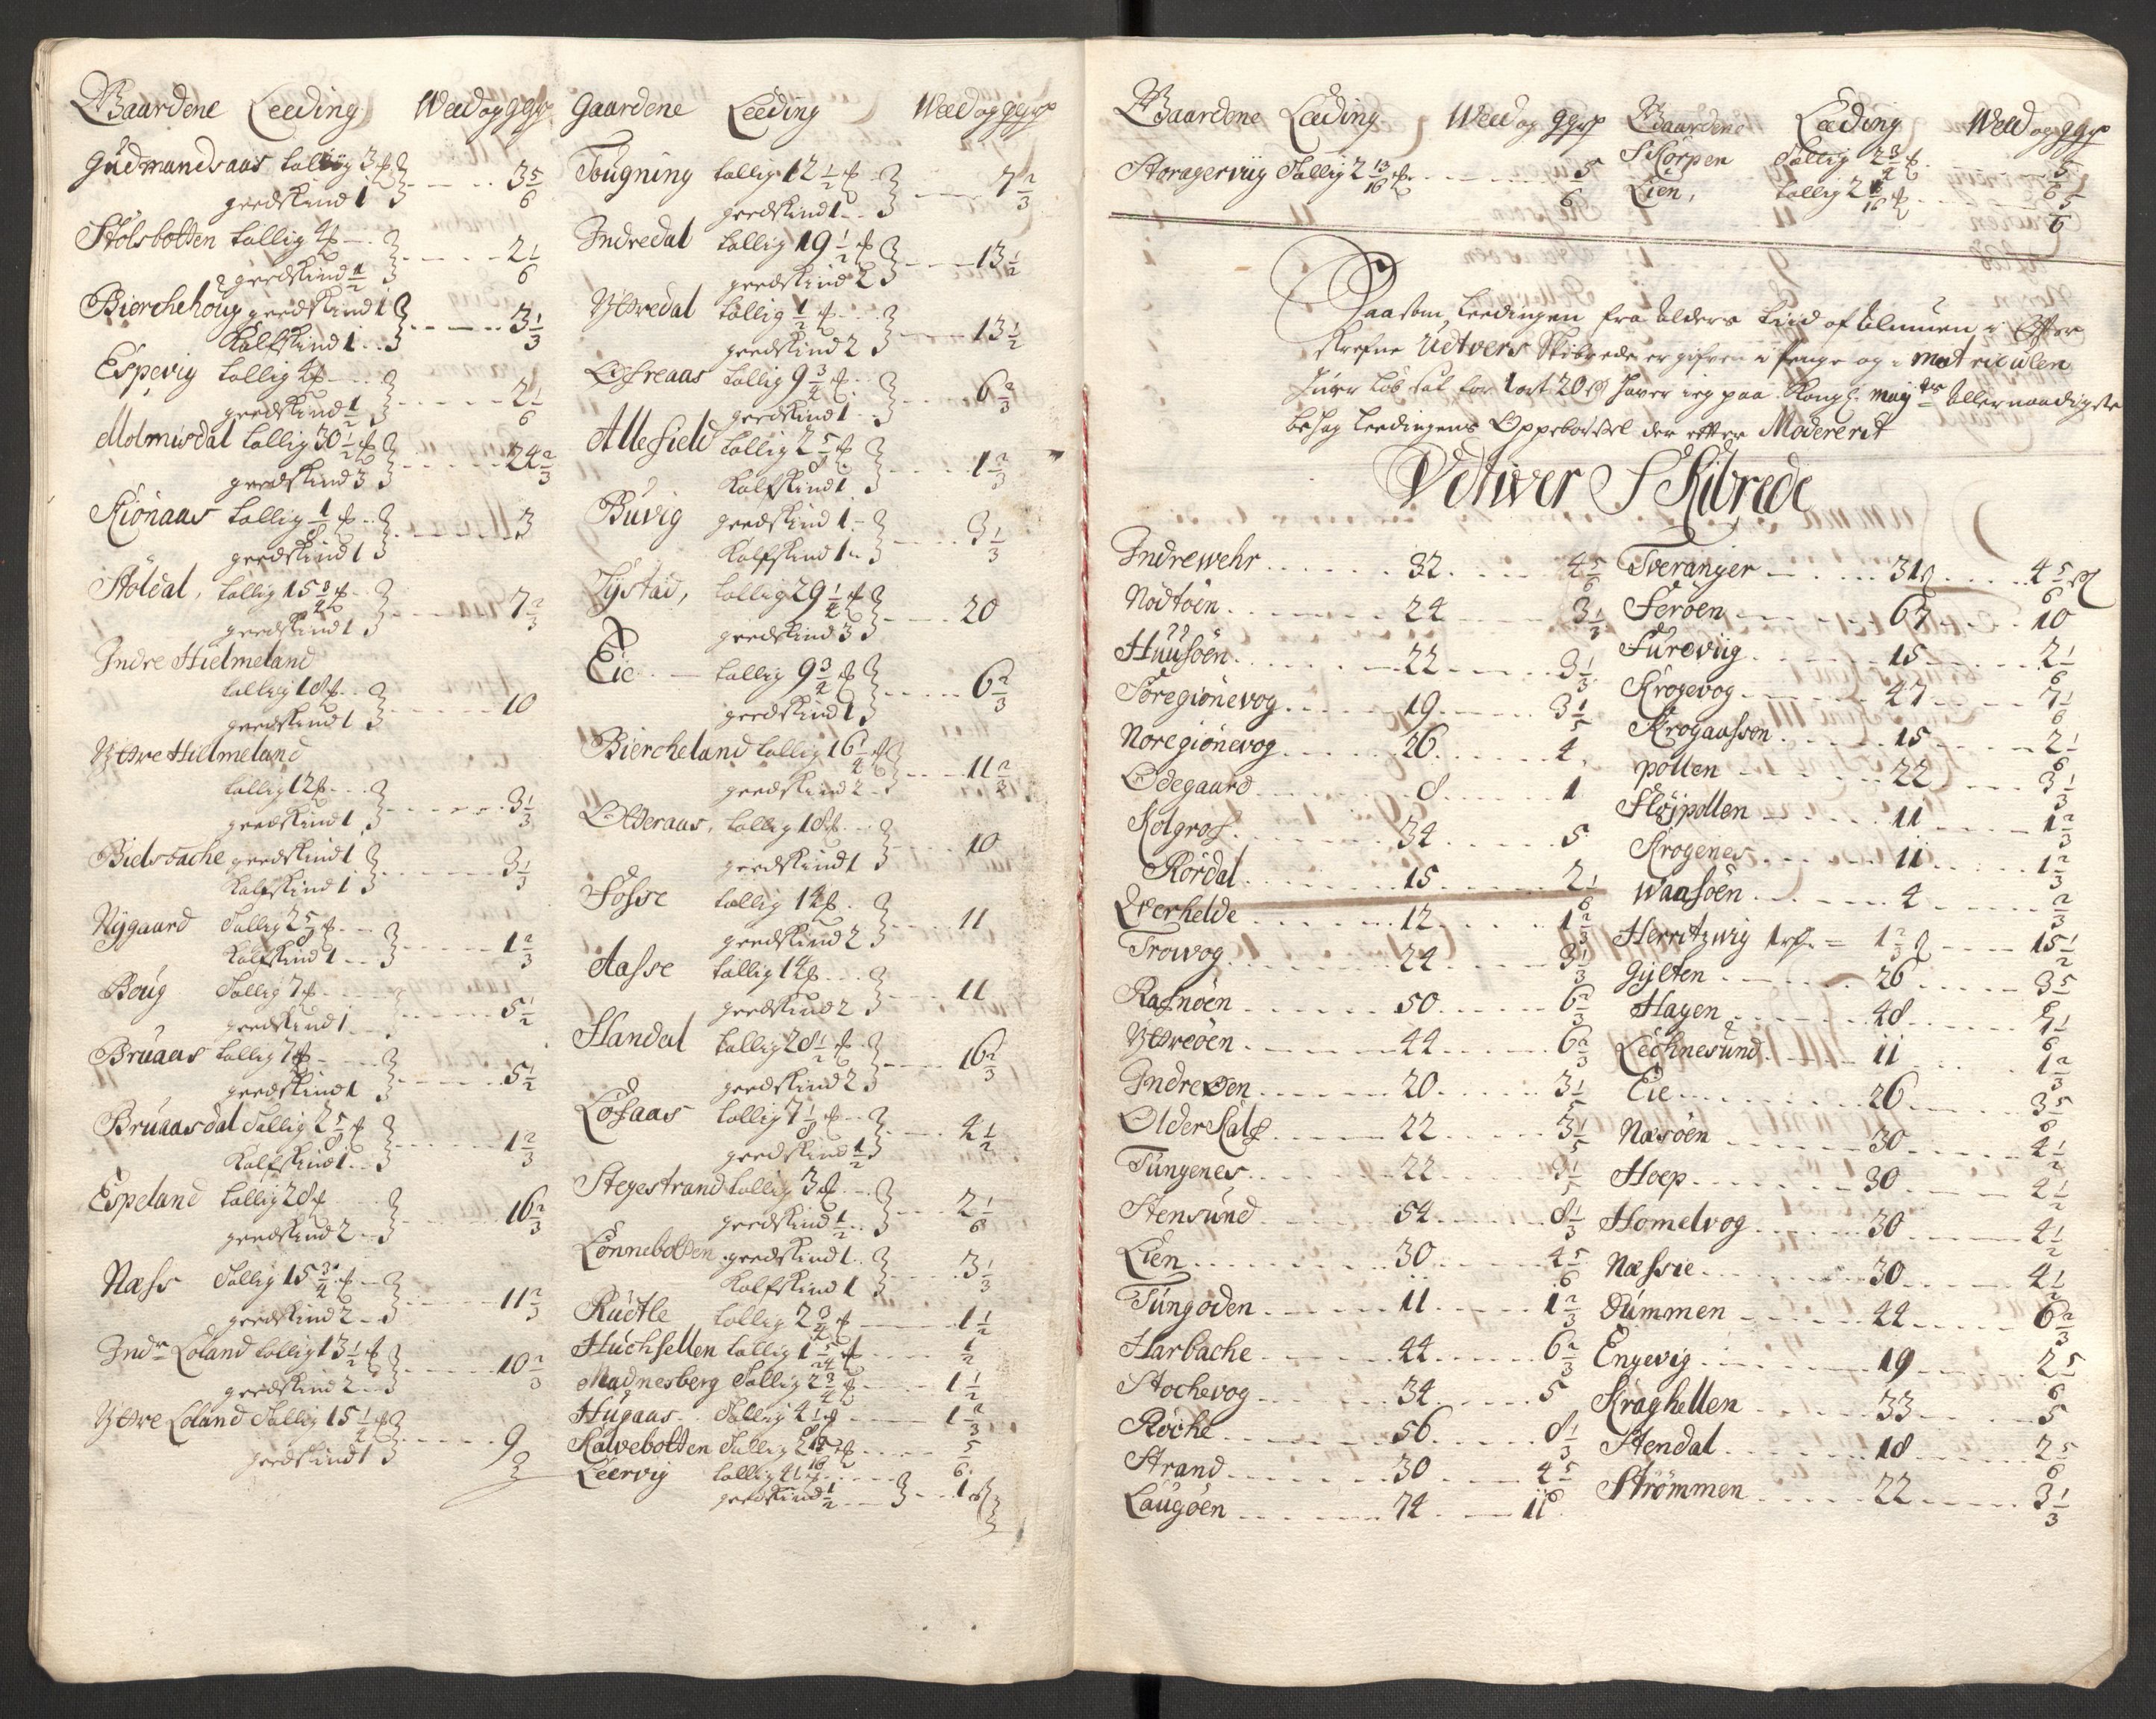 Gaardene Leeding Weed og ggfp
Gudmandsaas tallig 3 ℔
geedskind 1 3 5/6
Stolsbotten tallig 4 ℔
geedskind 1/2 2 1/6
Bierchehoug geedskind 1
Kalfskind 1 3 1/3
Espevig tallig 4 ℔
geedskind 1/2 2 1/6
Molmisdal tallig 30 1/2 ℔
geedskind 3 24 2/3
Kionaas tallig 1/8 ℔
geedskind 1 3
Støldal, tallig 15 3/4 ℔
geedskind 1 7 2/3
Indre Hielmeland
tallig 18 ℔
geedskind 1 10
Yttre Hielmeland
tallig 12 ℔
geedskind 1 3 1/3
Bielsbache geedskind 1
Kalfskind 1 3 1/3
Nygaard Tallig 2 5/8 ℔
Kalfskind 1 1 2/3
Boug Tallig 7 ℔
geedskind 1 5 1/2
Bruaas tallig 7 ℔
geedskind 1 5 1/2
Bruaasdal Tallig 2 5/8 ℔
Kalfskind 1 1 2/3
Espeland tallig 28 ℔
geedskind 2 16 2/3
Næss Tallig 15 3/4 ℔
geedskind 2 11 2/3
Indr Loland tallig 13 1/2 ℔
geedskind 2 10 2/3
Yttre Loland Tallig 15 1/4 ℔
geedskind 1 9
Gaardene Leeding Weed og ggfp
Tougning tallig 12 1/2 ℔
geedskind 1 7 2/3
Indredal tallig 19 1/2 ℔
geedskind 2 13 1/2
Yttredal tallig 1/2 ℔
geedskind 2 13 1/2
Ofreaas tallig 9 3/4 ℔
geedskind 1 6 2/3
Allefield tallig 2 5/8 ℔
Kalfskind 1 1 2/3
Buvig geedskind 1
Kalfskind 1 3 1/3
Tystad, tallig 29 1/4 ℔
geedskind 3 20
Eie tallig 9 3/4 ℔
geedskind 1 6 2/3
Biercheland tallig 16 1/4 ℔
geedskind 2 11 2/3
Olderaas, tallig 18 ℔
geedskind 1 10
Fosse tallig 14 ℔
geedskind 2 11
Aasse tallig 14 ℔
geedskind 2 11
Handal tallig 28 1/2 ℔
geedskind 2 16 2/3
Lofaas tallig 7 1/8 ℔
geedskind 1/2 4 1/2
Stegestrand tallig 3 ℔
geedskind 1/2 2 1/6
Lonnebotten geedskind 1
Kalfskind 1 3 1/3
Rudtle tallig 2 3/4 ℔ 1 1/2
Huchsetten tallig 1 5/24 ℔ 1/2
Madnesberg Tallig 2 3/4 ℔ 1 1/2
Hugaas Tallig 4 1/8 ℔ 1 2/3
Kalvebotten Tallig 2 13/16 ℔ 5/6
Leervig tallig 4 1/8 ℔
geedskind 1/2 1
Gaardene Leeding Weed og ggfp Gaardene Leeding Weed og ggfp
Storagerviig Tallig 2 13/16 ℔ 5/6 Skorpen Tallig 2 3/4 ℔ 5/6
Lien, tallig 2 1/16 ℔ 5/6
Saasom Leedingen fra Alders tiid af Almuen i Effter
skrefne Udtvers Skibrede er gifven i penge og i matriculen
huer Løb sat for 1 ort 20 ß haver ieg paa Kongl. mayts Allernaadigste
behag Leedingens Oppebørsel der effter Modererit
Udtwer Skibrede
Indrewehr 32 4 5/6
Nodtoen 24 3 1/3
Huusøen 22 3 1/3
Søregiønevog 19 3 1/5
Noregiønevog 26 4
Ødegaard 8 1
Kolgrof 34 5
Rørdal 15 2 1/6
Qverhelde 12 1 2/3
Trowog 24 3 1/3
Rafnøen 50 6 2/3
Yttreøen 44 6 2/3
Indreøen 20 3 1/5
Olderkalf 22 3 1/5
Tungenes 22 3 1/5
Stensund 54 8 1/3
Lien 30 4 5/6
Tungoden 11 1 2/3
Harbache 44 6 2/3
Stochevog 34 5
Røche 56 8 1/3
Strand 30 4 5/6
Laugøen 74 11
Tveranger 31 ß 4 5/6 ℔
Serøen 67 10
Fureviig 15 2 1/6
Krogevog 47 7 1/6
Krogaassen 15 2 1/6
pollen 22 3 1/3
Fløjpollen 11 1 2/3
Krogenes 11 1 2/3
Waasøen 4 2/3
Herritzwig 1 rß. = 1 2/3 ß 15 1/2
Gylten 26 3 5/6
Hagen 48 7 1/6
Lechnesund 11 1 2/3
Eie 26 3 5/6
Næsøen 30 4 1/2
Hoep 30 4 1/2
Homelvog 30 4 1/2
Næssie 30 4 1/2
Dummen 44 6 2/3
Engevig 19 2 5/6
Kraghellen 33 5
Stendal 18 2 5/6
Strømmen 22 3 1/3